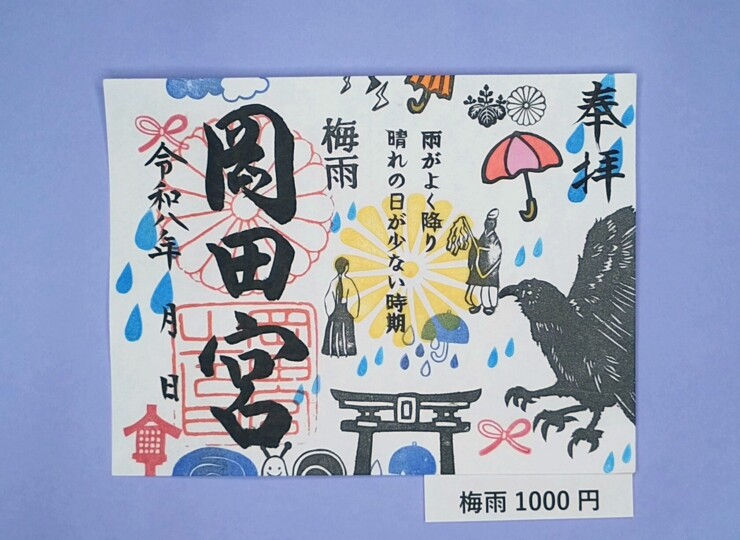 奉拝
雨がよく降り
晴れの日が少ない時期
梅雨
岡田宮
令和八年 月 日
梅雨 1000 円